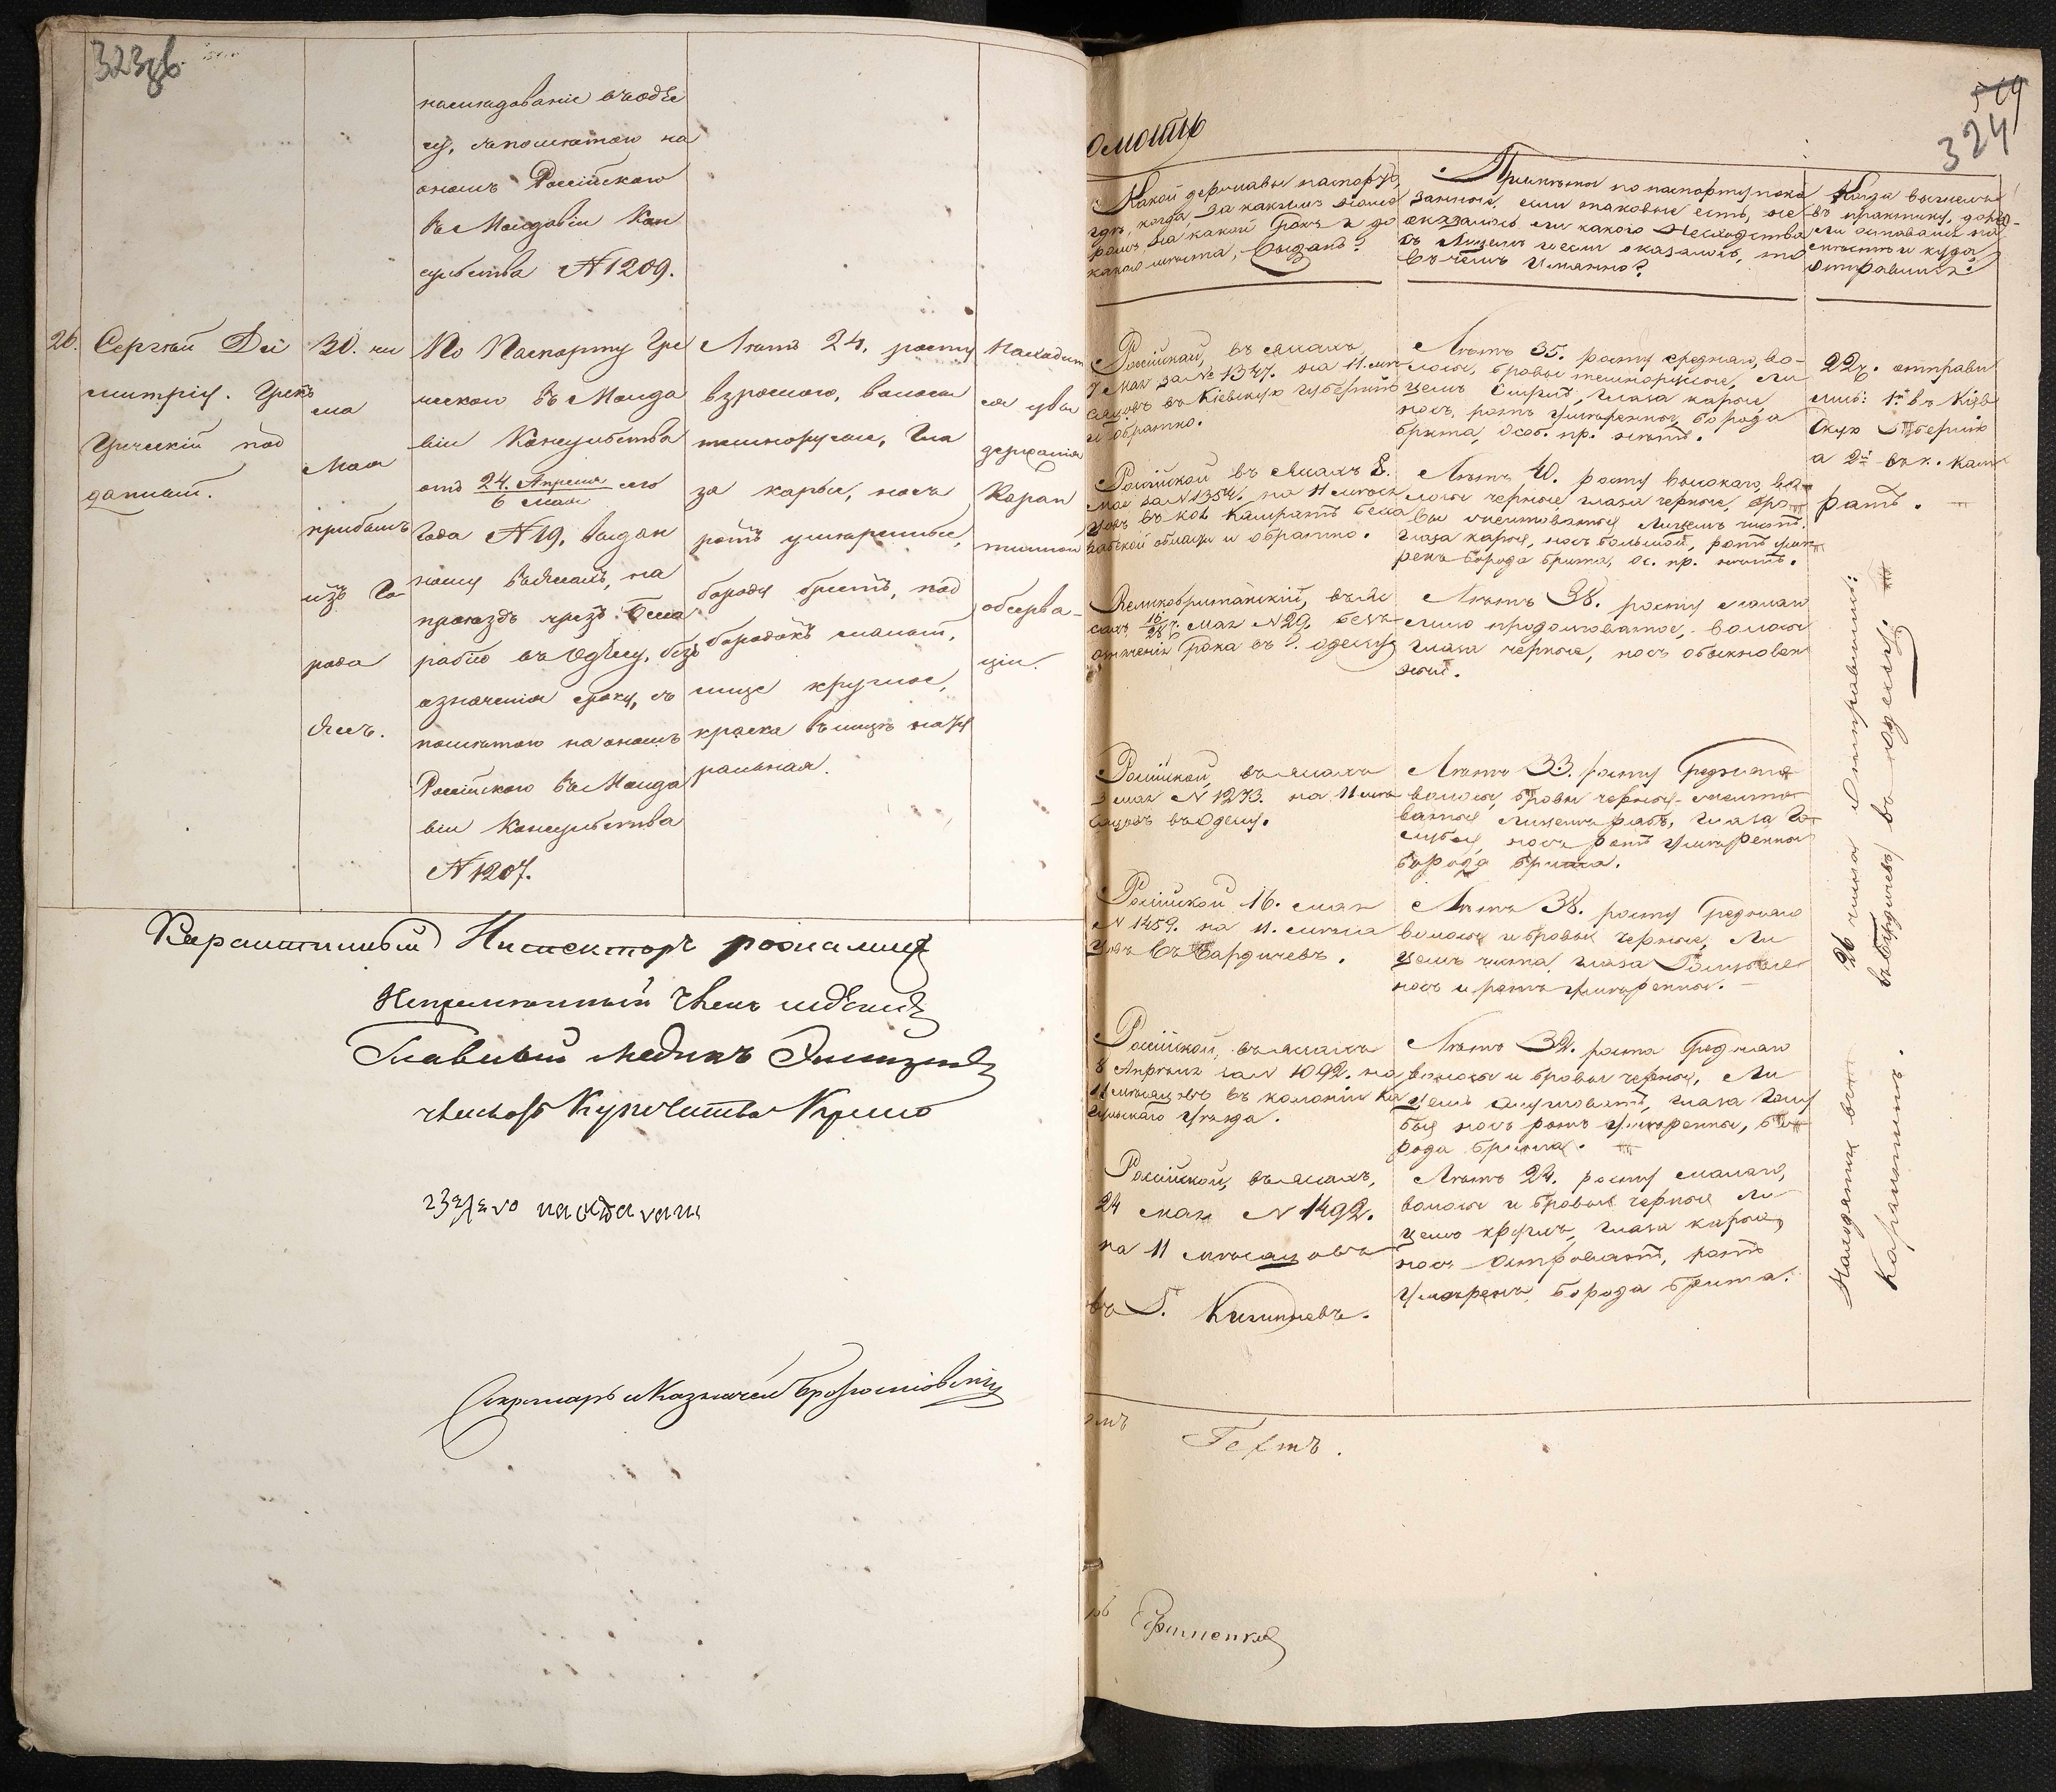 323об.
наслѣдованіе въ Одѣс
су, съ помѣтою на
ономъ Россійскаго
въ Молдавіи Кон
сульства №1209.
26.
Сергѣй Ди
митрiу. Грекъ
Греческій под
данный.
30. чи
сла
Мая
прибылъ
изъ Го
рода
Яссъ.
По Паспорту Гре
ческаго въ Молда
віи Консульства
отъ 24. Апрѣля / 6 мая сего
Года №19. выдан
ному въ Яссахъ, на
проѣздъ чрезъ Бесса
рабію въ Одѣссу, безъ
означенія сроку, съ
помѣтою на ономъ
Россійскаго въ Молда
віи Консульства
№1207.
Лѣтъ 24. росту
взрослаго, волосы
темнорусые, Гла
за каріе, носъ
ротъ умѣренные,
бороду брѣетъ, под
бородокъ малый,
лице круглое,
краска въ лицѣ нату
ральная.
Находит
ся у вы
держанія
Каран
тинной
обсерва-
ціи.
Карантинный Инспекторъ
Непремѣнный Членъ
Главный Медикъ
Членъ отъ Купечества
Секретарь и Казначей
519
324
омость
Какой державы паспортъ,
гдѣ, когда, за какимъ номе
ромъ на какой срокъ и до
какого мѣста, выданъ?
Примѣты по паспорту пока
занные, если таковые есть, не
оказалось ли какого несходства
съ Лицемъ и если оказалось, то
въ чемъ именно?
Когда выпущены
въ практику, долго-
ли оставались на
мѣстѣ и куда
отправились?
Россійской, въ Яссахъ
7 Мая за № 1347. на 11. мѣ
сяцовъ въ Кіевскую Губернію
и обратно.
Лѣтъ 35. росту средняго, во-
лосы, бровы темнорусые, ли
цемъ смуглъ, глаза каріе
носъ, ротъ умѣренные, борода
брита, особ. пр. нѣтъ.
22го. отправи
лись: 1й въ Кіев
скую Губернію
а 2й въ к. Каш
ратъ.
Россійской въ Яссахъ 8.
мая за №1354. на 11 мѣся
цовъ въ кол. Кашратъ Бесса
рабской области и обратно.
Лѣтъ 40. росту высокаго, во
лосы черные, глаза черные, бро
вы Лицемъ чистъ.
глаза каріе, носъ большой, ротъ умѣ
ренъ борода брита, ос. пр. нѣтъ.
Великобританскій, въ Яс
сахъ 16/28 Мая №29, безъ
означенія срока въ г. Одессу
Лѣтъ 38. росту малаго
лицо продолговатое, волосы
глаза черные, носъ обыкновен
ный.
Россійской, въ Яссахъ
3 мая №1273. на 11 мѣ
сяцовъ въ Одессу.
Лѣтъ 33. росту средняго
волосы, бровы черные
Лицемъ рябъ, глаза го
лубые, носъ ротъ умѣренные
борода брита.
Россійской 16. мая
№1459. на 11. мѣся
цовъ въ Бардичевъ.
Лѣтъ 38. росту средняго
волосы и бровы черные, Ли
цемъ чистъ, глаза
носъ и ротъ умѣренные.
Россійской, въ Яссахъ
8 Апрѣля за № 1092. на
11 мѣсяцовъ въ колонію
Уѣзда.
Лѣтъ 32. роста средняго
волосы и бровы черные, Ли
цемъ глаза голу
бые носъ ротъ умѣренные, бо
рода брита.
Россійской, въ Яссахъ,
24 мая №1492.
на 11 мѣсяцовъ
въ Г. Кишиневъ.
Лѣтъ 24. росту малаго,
волосы и бровы черные Ли
цемъ круглъ, глаза каріе,
носъ островатъ, ротъ
умѣренъ борода брита.
26 числа отправились:
въ Бардичевъ, въ Одессу.
Находятся въ
Карантинѣ.
омъ